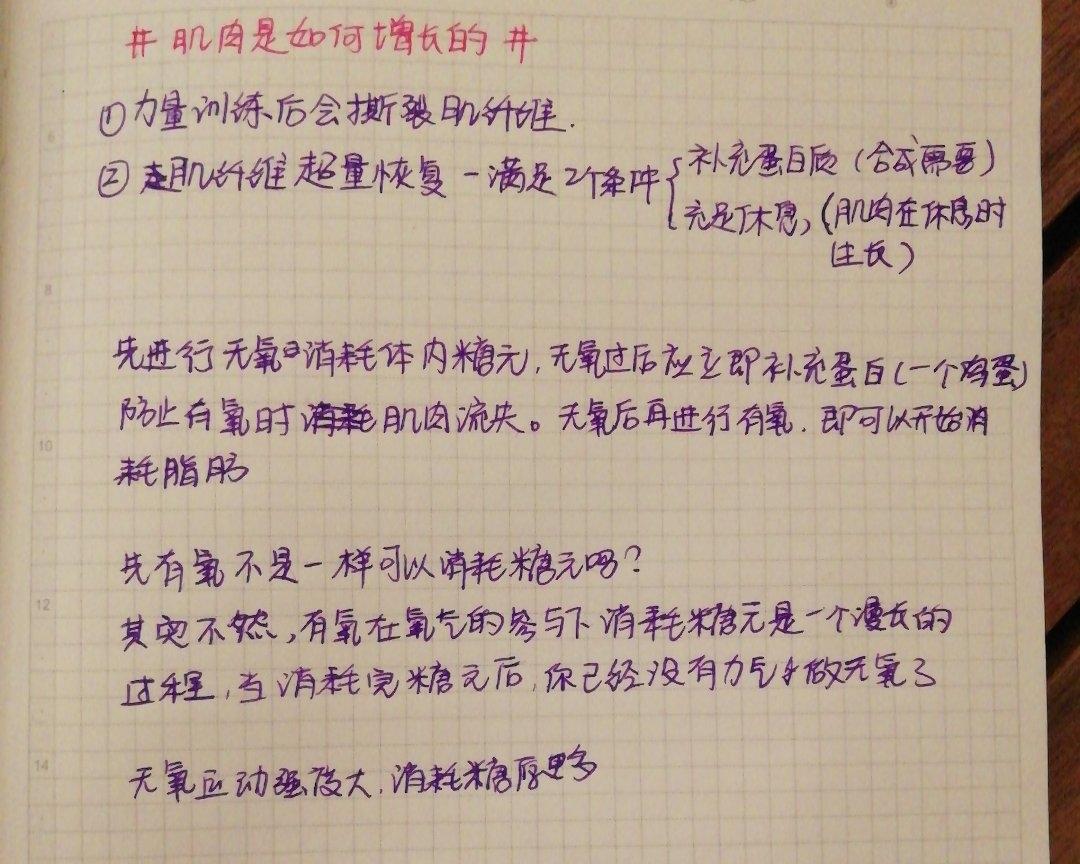 # 肌肉是如何增长的 #
①力量训练后会撕裂肌纤维.
②肌纤维超量恢复-满足2个条件{补充蛋白质(合成需要)
充足休息,(肌肉在休息时
生长)
先进行无氧消耗体内糖元,无氧过后应立即补充蛋白(一个鸡蛋)
防止有氧时消耗肌肉流失。无氧后再进行有氧.即可以开始消
耗脂肪
先有氧不是一样可以消耗糖元吗?
其实不然,有氧在氧气的参与下消耗糖元是一个漫长的
过程,当消耗完糖元后,你已经没有力气做无氧了
无氧运动强度大,消耗糖原更多
6
8
10
12
14